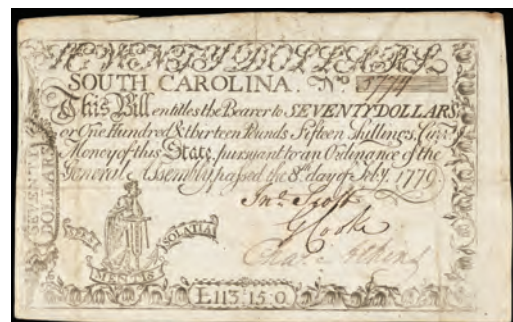 SEVENTY DOLLARS
SOUTH CAROLINA. No 1774
This Bill entitles the Bearer to SEVENTY DOLLARS
or One Hundred & thirteen Pounds Fifteen Shillings, Curr.t
Money of this State, pursuant to an Ordinance of the
General Assembly, passed the 8th day of Feby. 1779.
Jno. Scott
G Cooke
SEVENTY
DOLLARS
SOLATIA
MENTIS
£113:15:0